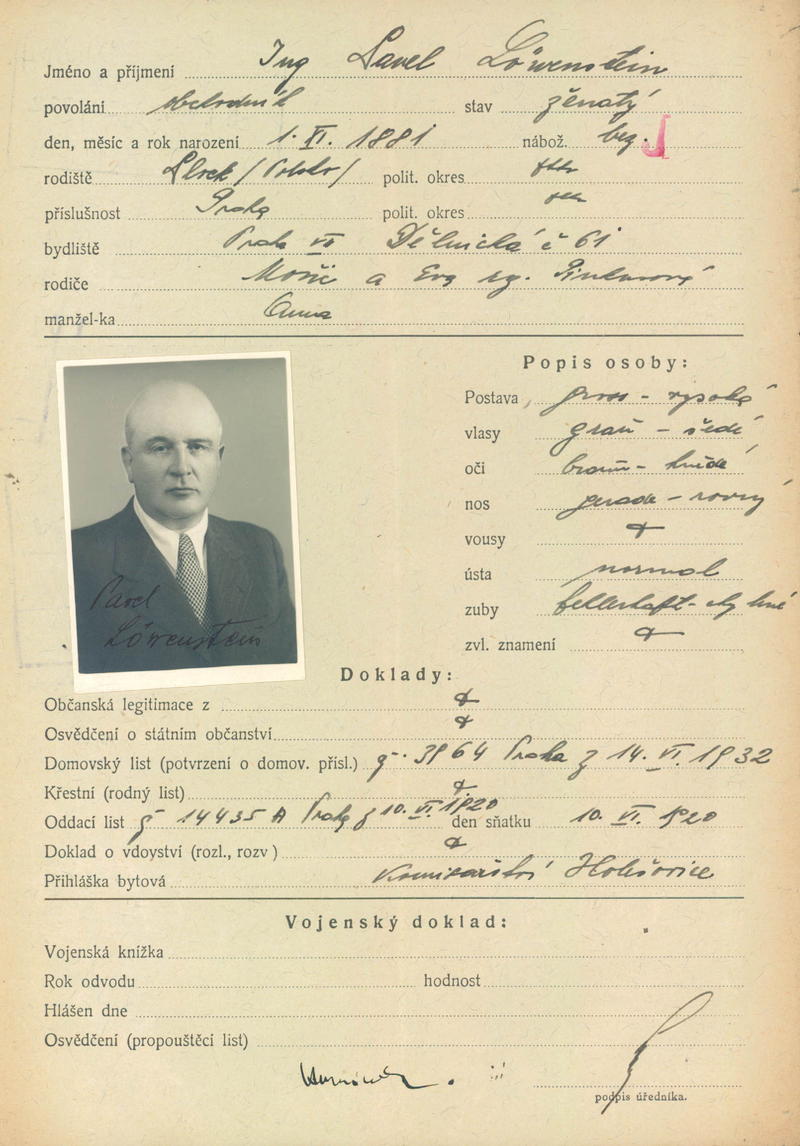 Jméno a příjmení Ing Pavel Löwenstein
povolání obchodník stav ženatý
den, měsíc a rok narození 1. XI. 1881 nábož. bez. J
rodiště polit. okres
příslušnost Praha polit. okres
bydliště Praha VII Dělnická č 61
rodiče a Eva
manžel-ka Anna
Popis osoby:
Postava gross - vysoká
vlasy grau - šedé
oči braun - hnědé
nos gerade - rovný
vousy
ústa normal
zuby
zvl. znamení
Pavel
Löwenstein
Doklady:
Občanská legitimace z
Osvědčení o státním občanství
Domovský list (potvrzení o domov. přísl.) 3964 Praha z 14. VI. 1932
Křestní (rodný list)
Oddací list 14435 A Praha z 10. VI. 1920 den sňatku 10. VI. 1920
Doklad o vdovství (rozl., rozv)
Přihláška bytová Komisařství Holešovice
Vojenský doklad:
Vojenská knížka
Rok odvodu hodnost
Hlášen dne
Osvědčení (propouštěcí list)
podpis úředníka.